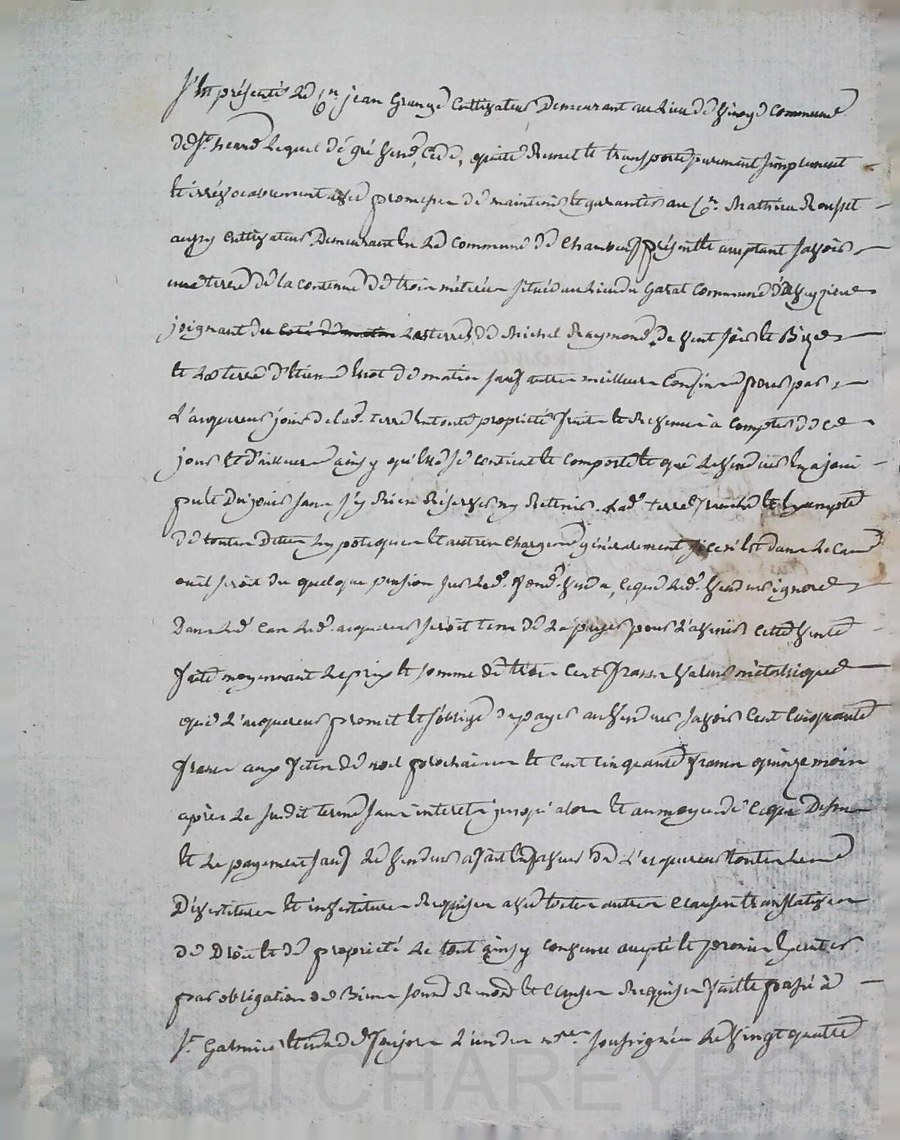 S'est présenté le Cn jean Grange Cultivateur Demeurant au Lieu de commune
de St heand Lequel de gré vend, cede, quite Remet et transporte purement simplement
et irrévocablement avec promesse de maintenir et garantir au Cn. Mathieu Rousset
aussy Cultivateur Demeurant en commune de Chambeuf présent et acceptant savoir
une terre de la contenue de trois métérée située au Lieu du Garat Commune de
joignant du coté de matin Les terres de Michel Raymond, de vent soir et Bize
et La terre d'Etienne de matin sauf autres meilleurs Confins pour par
L'acquereur jouir de lad. terre en toute propriété fruits et Revenus à compter de ce
jour et d'ailleurs ainsy qu'elle se contient et comporte et que Le vendeur en a joui
pu et Du jouir sans s'y Rien Réserver ny Retenir. Lad. terre franche et Exempte
de toutes Dettes hypoteques et autres charges généralement si ce n'est dans Le Cas
ou il seroit du quelque pension sur Led. fond vendu, ce que Led. vendeur ignore
Dans Led. Cas Led. acquereur seroit tenu de La payer pour L'avenir Cette vente
faite moyennant Le prix et somme de trois Cent francs valeur métallique
que L'acquereur promet et s'oblige de payer au vendeur savoir Cent Cinquante
francs aux fetes de noel prochaines et Cent Cinquante francs quinze mois
après Le susdit terme sans interets jusqu'alors et au moyen de ce que Dessus
et Le payement sauf Le vendeur a fait En faveur de L'acquereur toutes Les
Divestitures et investitures Requises avec toutes autres Clauses translatives
de Droit et de propriété Le tout ainsy convenu accepté et promis
par obligation de Biens soumis Renon et Clauses Requises fait et passé à
St Galmier etude de L'un des nres. soussignés Le vingt quatre
Pascal CHAREYRON